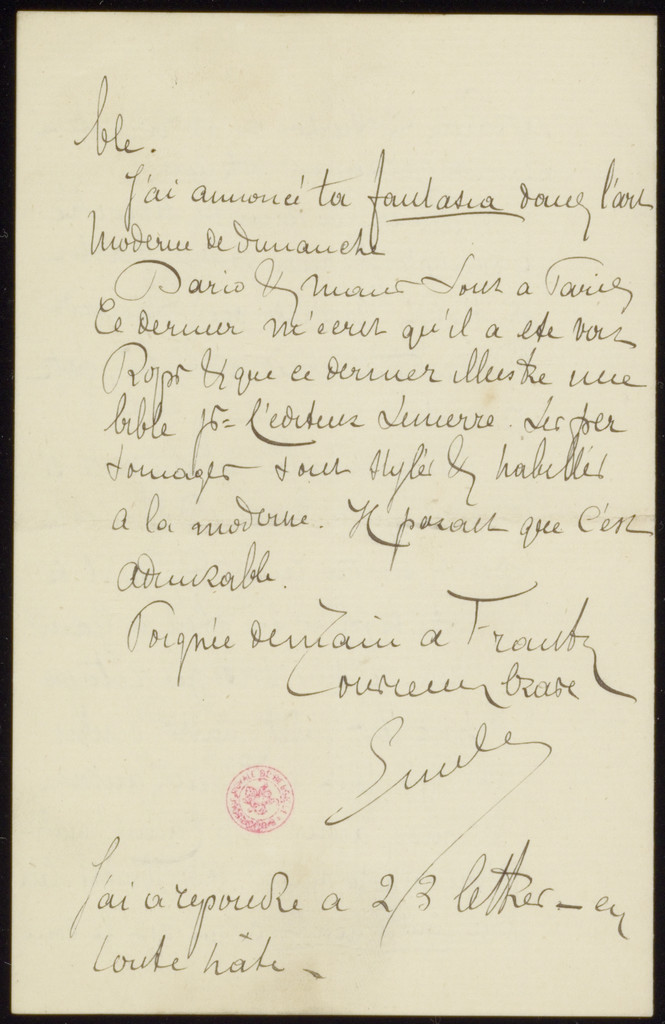 ble.
J'ai annoncé ta fantasia dans l'art
moderne de dimanche
Dario & maus sont a Paris
Ce dernier m'ecrit qu'il a ete voir
Rops & que ce dernier illustre une
bible pr= l'editeur Lemerre. Les per
sonnages sont stylés & habillés
à la moderne. Il parait que c'est
admirable.
Poignée de main a Frantz
mon brave
Emile
J'ai a repondre a 2/3 lettres – en
toute hâte –